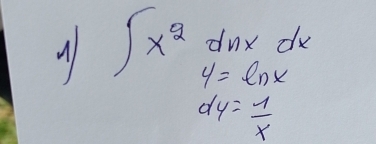 1) ∫ x² dnx dx
y = lnx
dy = 1/x